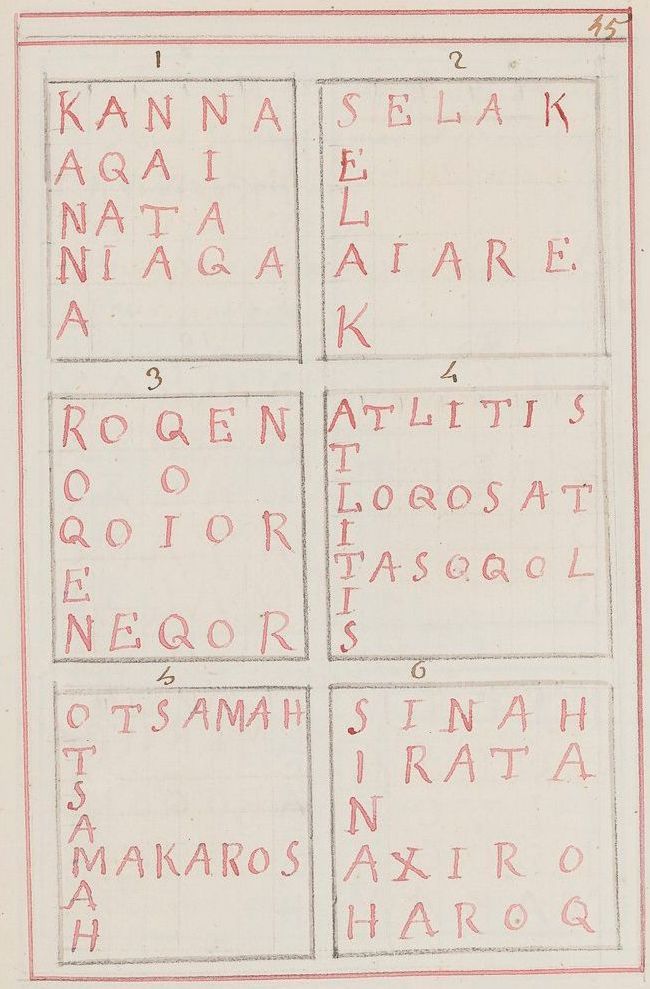 45
1
KANNA
AQAI
NATA
NIAQA
A
2
SELAK
E
L
AIARE
K
3
ROQEN
O O
QOIOR
E
NEQOR
4
ATLITIS
T
LOQOSAT
I
TASOQOL
I
S
5
OTSAMAH
T
S
A
MAKAROS
A
H
6
SINAH
IRATA
N
AXIRO
HAROQ